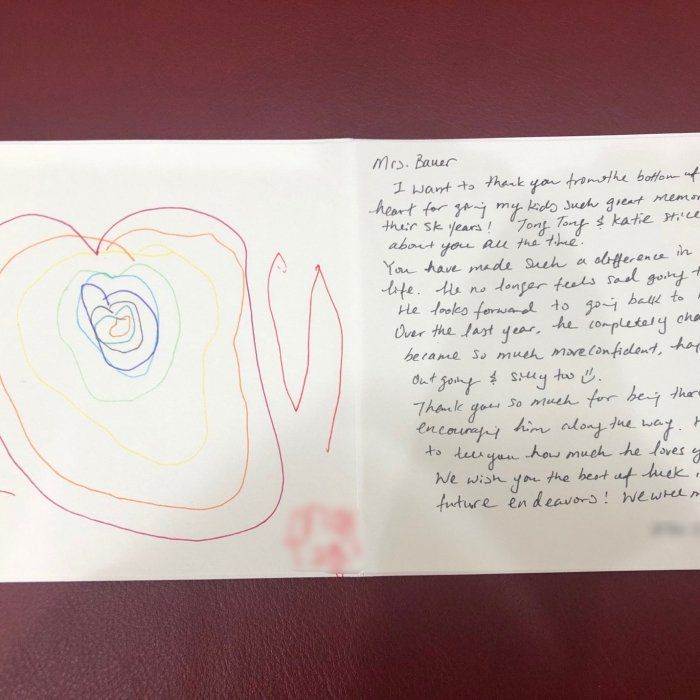 Mrs. Bauer
I want to thank you from the bottom of
heart for giving my kids such great memor
their SK years! Tong Tong & Katie still
about you all the time.
You have made such a difference in
life. He no longer feels sad going t
He looks forward to going back to
Over the last year, he completely cha
became so much more confident, hap
outgoing & silly too
Thank you so much for being there
encouraging him along the way. H
to tell you how much he loves y
We wish you the best of luck
future endeavors! We will m